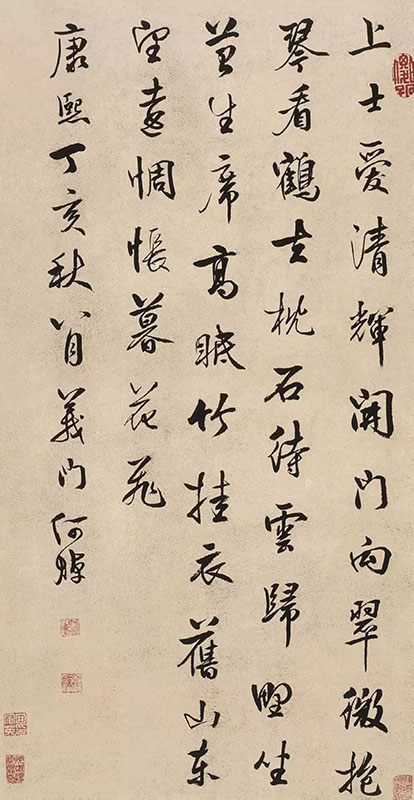 上士愛清輝開門向翠微抱
琴看鶴去枕石待雲歸野坐
苔生席高眠竹挂衣舊山东
望遠惆悵暮花飛
康熙丁亥秋八月義門何焯